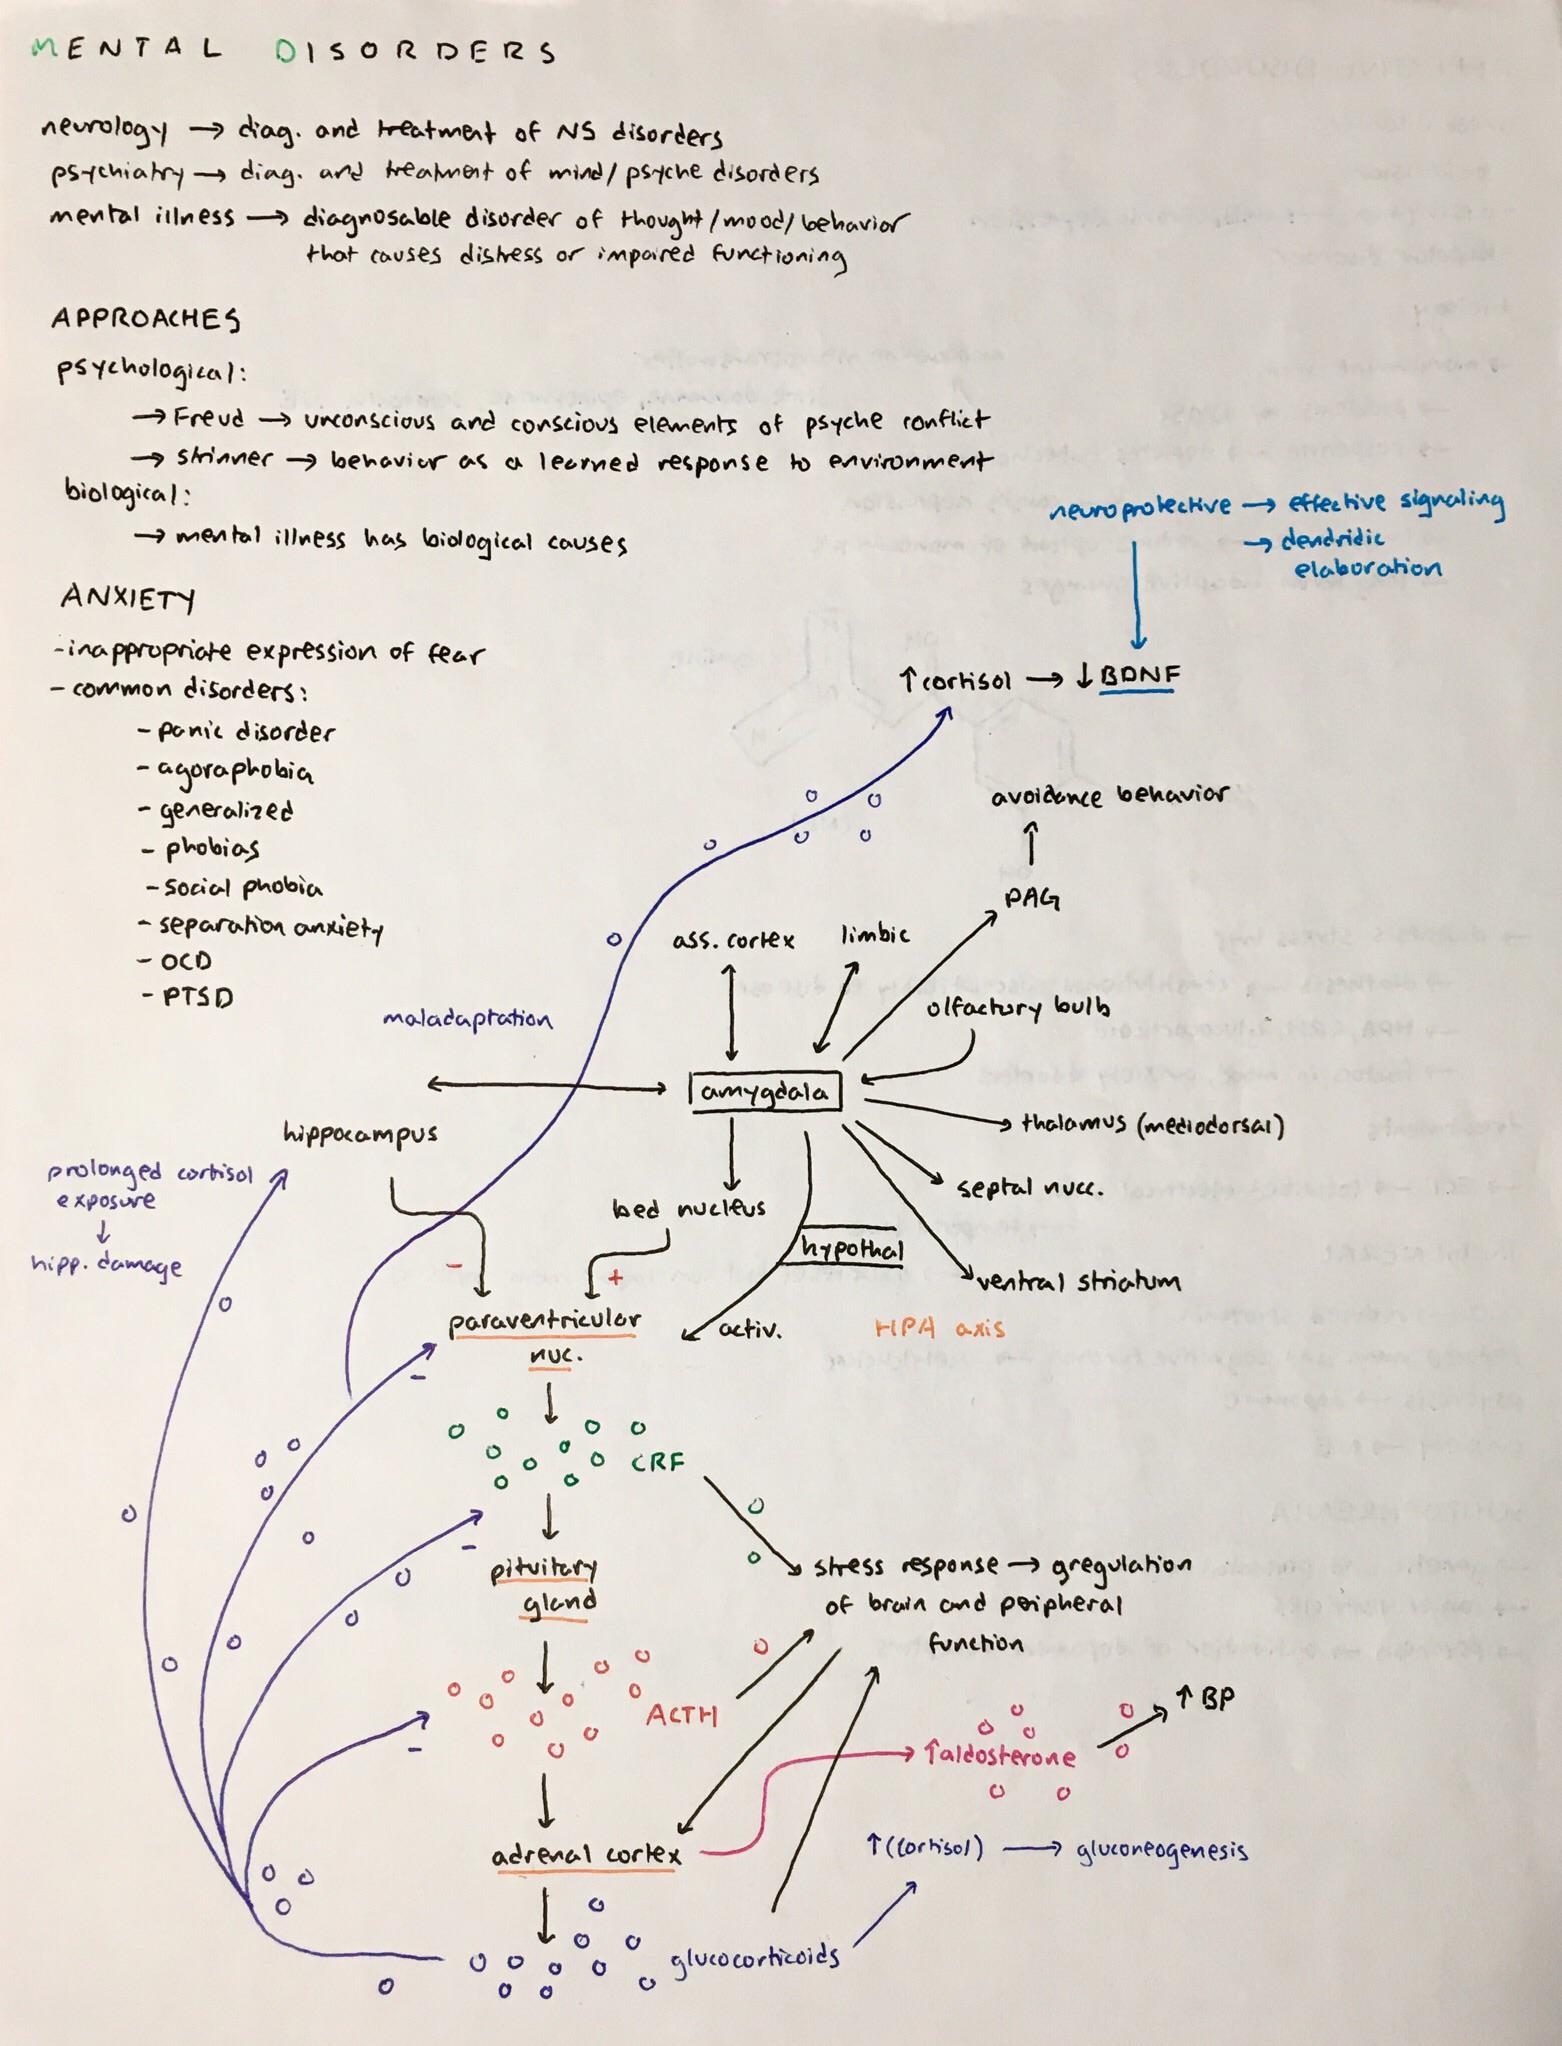 MENTAL DISORDERS
neurology → diag. and treatment of NS disorders
psychiatry → diag. and treatment of mind/psyche disorders
mental illness → diagnosable disorder of thought/mood/behavior
that causes distress or impaired functioning
APPROACHES
psychological:
→ Freud → unconscious and conscious elements of psyche conflict
→ skinner → behavior as a learned response to environment
biological:
→ mental illness has biological causes
neuroprotective → effective signaling
→ dendridic
elaboration
ANXIETY
-inappropriate expression of fear
- common disorders:
- panic disorder
- agoraphobia
- generalized
- phobias
- social phobia
- separation anxiety
- OCD
- PTSD
↑cortisol → ↓BDNF
avoidance behavior
PAG
ass. cortex
limbic
olfactory bulb
maladaptation
amygdala
hippocampus
thalamus (mediodorsal)
prolonged cortisol
exposure
↓
hipp. damage
septal nucc.
bed nucleus
hypothal
ventral striatum
-
+
paraventricular
nuc.
activ.
HPA axis
-
CRF
-
pituitary
gland
stress response → gregulation
of brain and peripheral
function
ACTH
-
↑BP
↑aldosterone
adrenal cortex
↑(cortisol) → gluconeogenesis
glucocorticoids